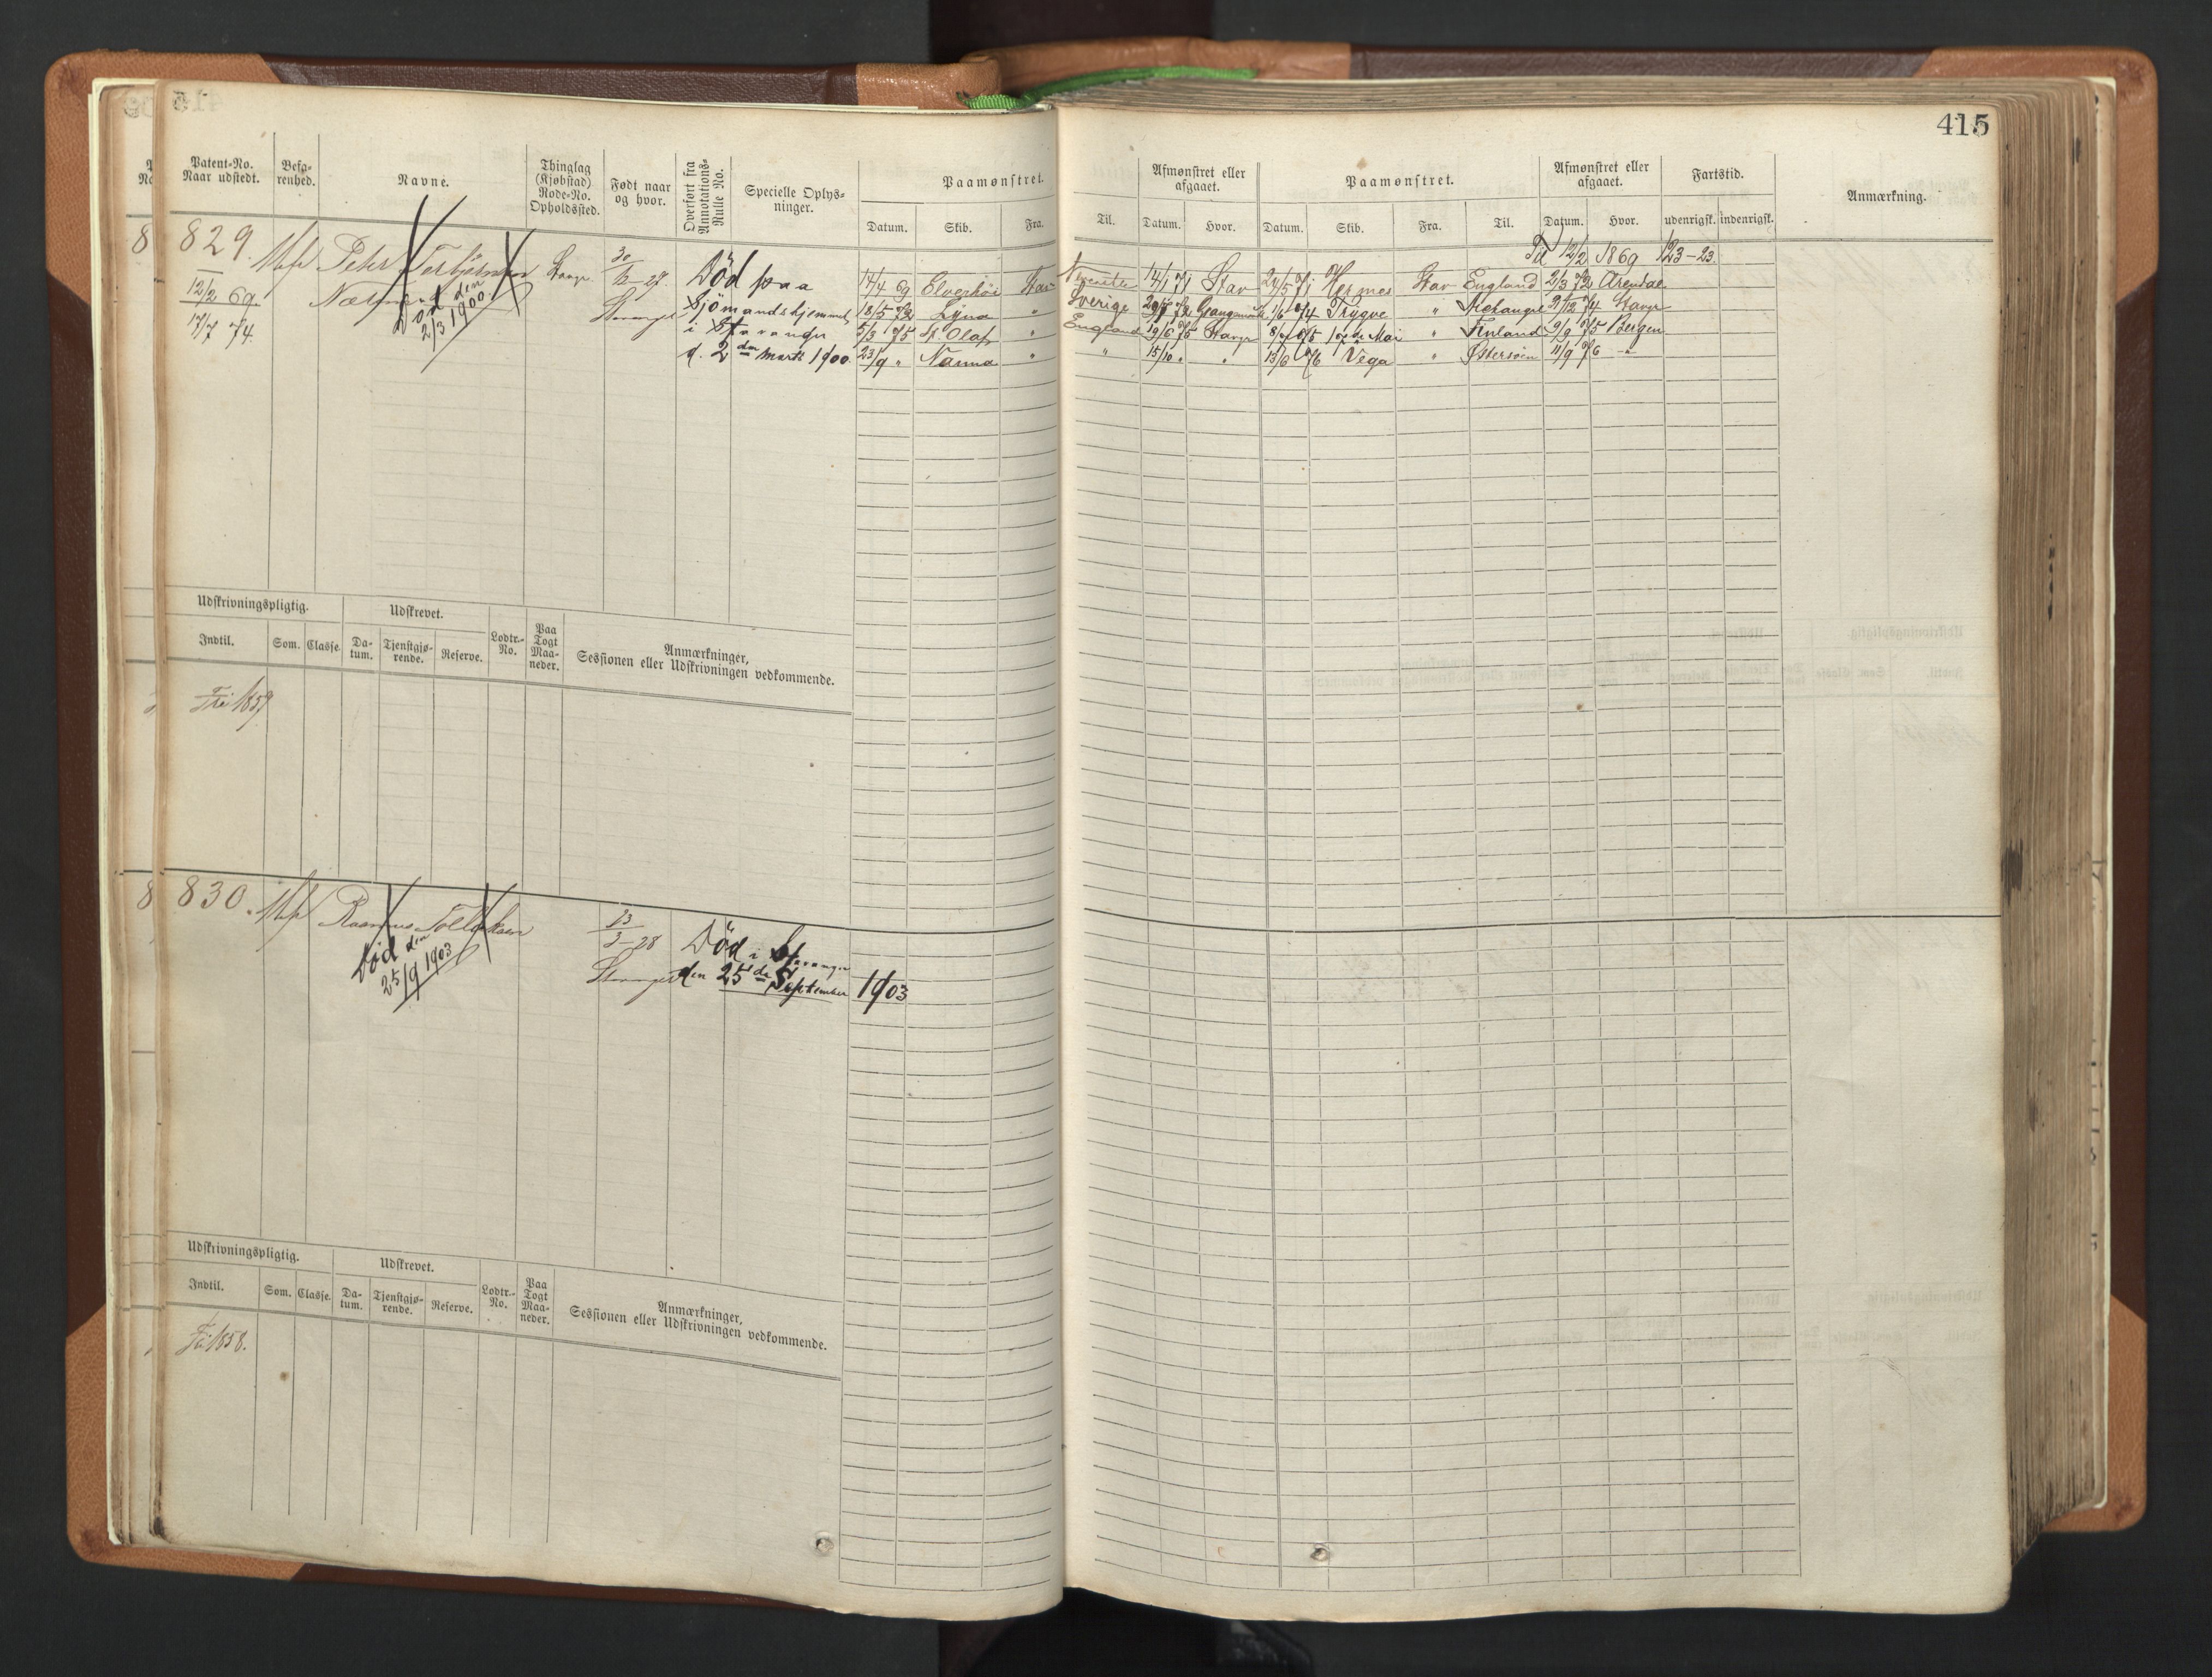 415
Patent-No. Naar udstedt.
Befarenhed.
Navne.
Thinglag (Kjøbstad) Rode-No. Opholdssted.
Født naar og hvor.
Overført fra Annotations-Rulle No.
Specielle Oplysninger.
Paamønstret.
Datum. Skib. Fra. Til.
Afmønstret eller afgaaet.
Datum. Hvor.
Paamønstret.
Datum. Skib. Fra. Til.
Afmønstret eller afgaaet.
Datum. Hvor.
Fartstid.
udenrigsk. indenrigsk.
Anmærkning.
829.
12/2 69.
17/7 74.
Peter
Død den
2/3 1900
Død paa
Sjömandshjemmet
i Stavanger
d. 2den Marts 1900.
12/2 1869 123-23.
14/4 69 Elverhöi Stav 14/1 71 Stav 24/5 71 Hermes Stav England 2/3 72 Arendal
18/5 72 Lyna " Sverige 72 1/6 74 Trygve " Archangel 74 Stavgr
5/3 75 St. Olaf " England 19/6 75 Stavgr 8/7 75 Mai " Finland 9/9 75 Bergen
23/9 " Nanna " " 15/10 " " 13/6 76 Vega " Østersøen 11/9 76 -"-
Udskrivningspligtig.
Udskrevet.
Indtil. Som. Classe. Datum. Tjenstgjørende. Reserve. Lodtr.-No. Paa Togt Maaneder.
Anmærkninger, Sessionen eller Udskrivningen vedkommende.
Fri 1859
830.
Rasmus
Død den
25/9 1903
23/3-28
Stavanger
Død i Stavanger
den 25de September 1903
Udskrivningspligtig.
Udskrevet.
Indtil. Som. Classe. Datum. Tjenstgjørende. Reserve. Lodtr.-No. Paa Togt Maaneder.
Anmærkninger, Sessionen eller Udskrivningen vedkommende.
Fri 1858.